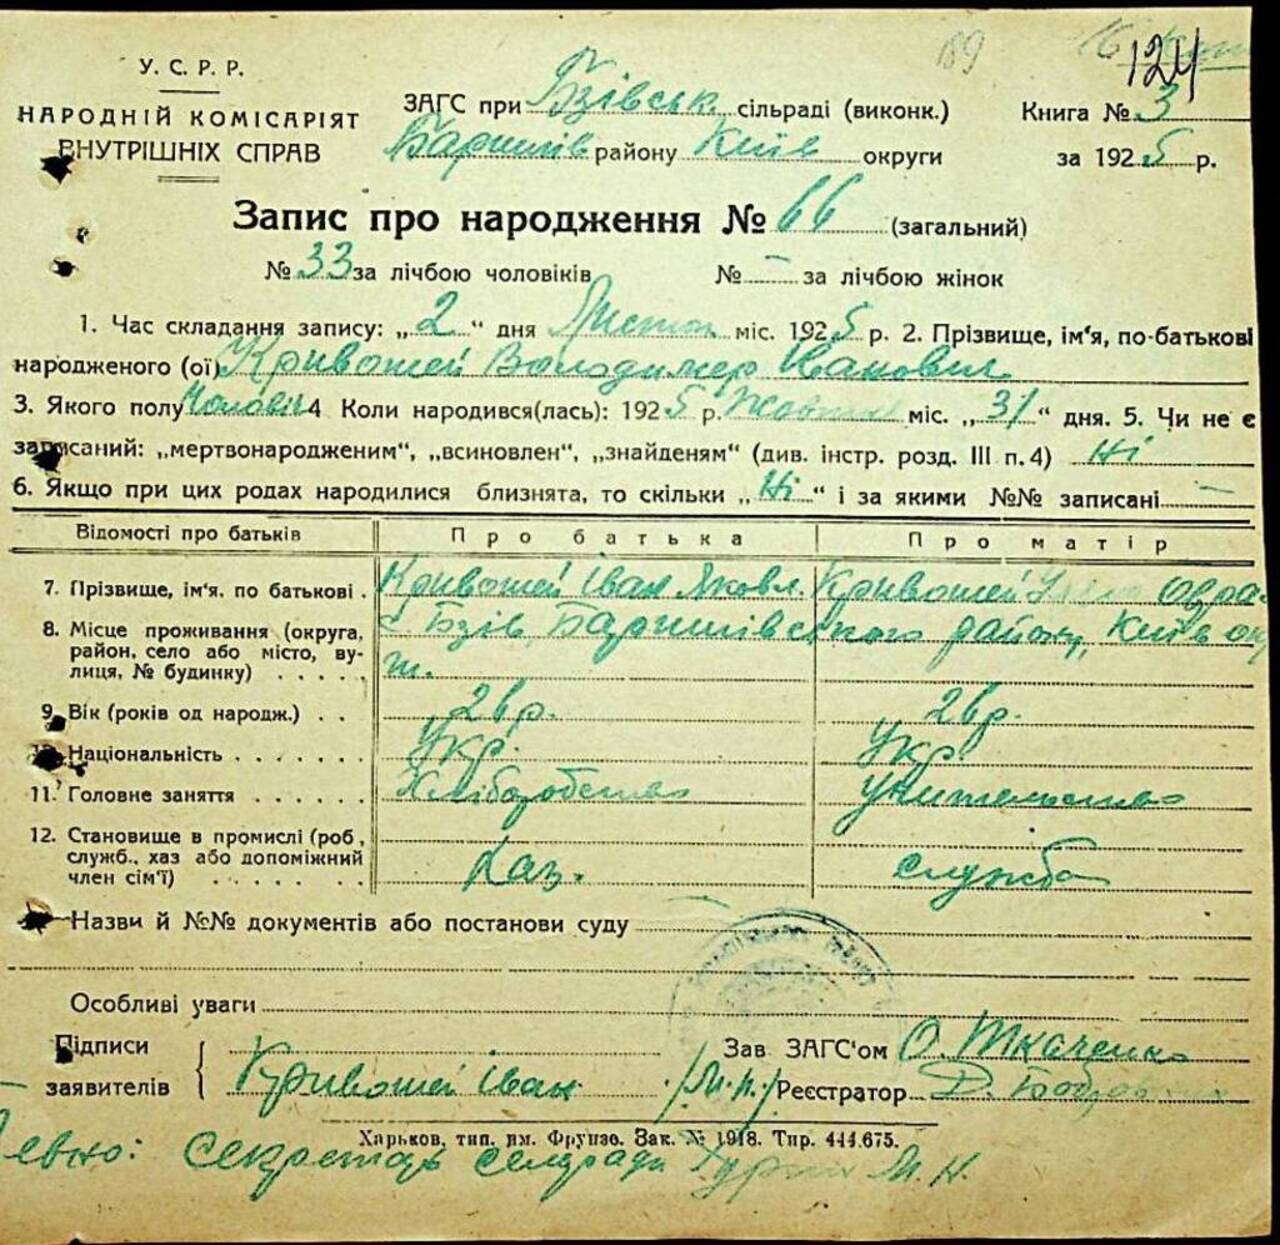 189
124
У. С. Р. Р.
НАРОДНІЙ КОМІСАРІЯТ
ВНУТРІШНІХ СПРАВ
ЗАГС при Бзівськ. сільраді (виконк.)
Баришів району Київ округи
Книга № 3
за 1925 р.
Запис про народження № 66 (загальний)
№ 33 за лічбою чоловіків № - за лічбою жінок
1. Час складання запису: „2“ дня Листоп. міс. 1925 р. 2. Прізвище, ім'я, по-батькові
народженого (ої) Кривошей Володимер Іванович
3. Якого полу Чоловіч 4 Коли народився(лась): 1925 р. Жовтня міс. „31“ дня. 5. Чи не є
записаний: „мертвонародженим“, „всиновлен“, „знайденям“ (див. інстр. розд. III п. 4) Ні
6. Якщо при цих родах народилися близнята, то скільки „Ні“ і за якими №№ записані -
Відомості про батьків Про батька Про матір
7. Прізвище, ім'я. по батькові . Кривошей Іван Яковл. Кривошей Овра-
8. Місце проживання (округа, с. Бзів Баришівського району, Київ ок
район, село або місто, ву-
лиця, № будинку) . . . . .
9. Вік (років од народж.) . . 26р. 26р.
10. Національність . . . . . . . Укр. Укр.
11. Головне заняття . . . . . . Хліборобство Учительство
12. Становище в промислі (роб,
служб., хаз або допоміжний
член сім'ї) . . . . . . Хаз. служба
Назви й №№ документів або постанови суду
Особливі уваги
Підписи
заявителів
Кривошей Іван
Зав ЗАГС'ом О. Ткаченко
/М.п./ Реєстратор Д.
Харьков, тип. им. Фрунзе. Зак. № 1918. Тир. 444.675.
Секретарь сельради М. Н.